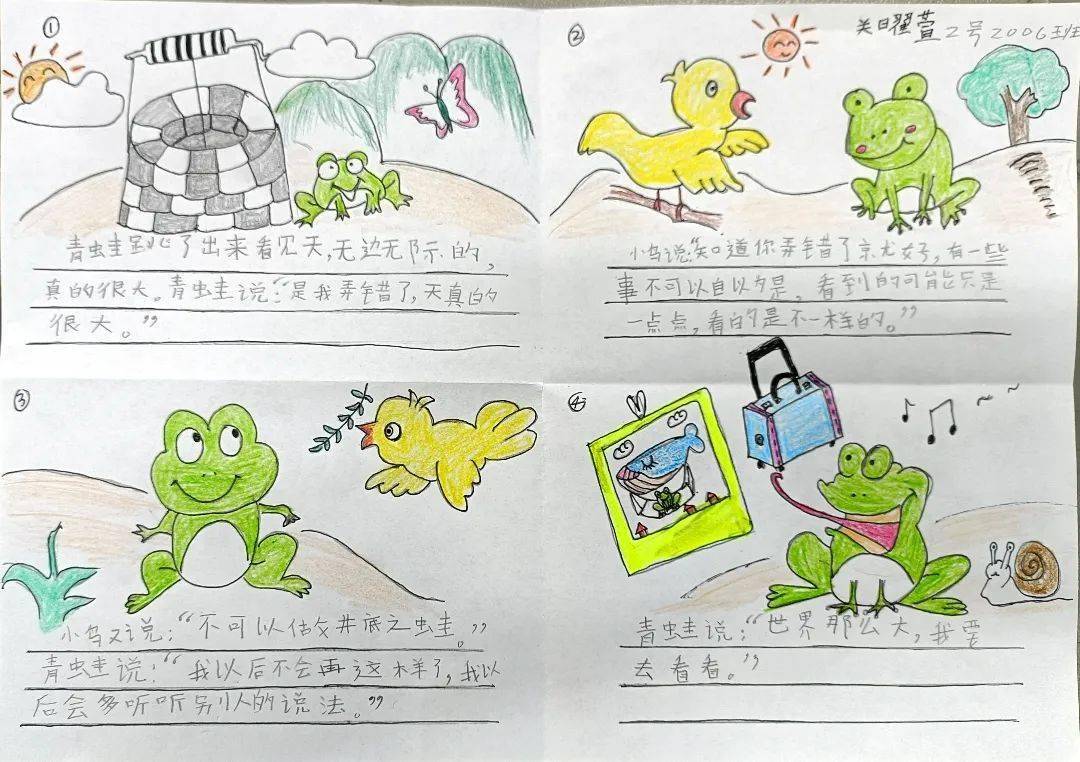 ①
青蛙跳了出来看见天,无边无际的,
真的很大。青蛙说:“是我弄错了,天真的
很大。”
②
关曜萱 2号 2006班
小鸟说:“知道你弄错了就好,有一些
事不可以自以为是,看到的可能只是
一点点,看的是不一样的。”
③
小鸟又说:“不可以做井底之蛙。”
青蛙说:“我以后不会再这样了,我以
后会多听听别人的说法。”
④
青蛙说:“世界那么大,我要
去看看。”